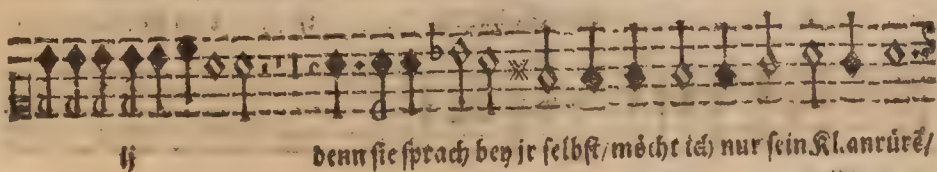 ij denn sie sprach bey ir selbst/ möcht ich nur sein Kl. anrürẽ/